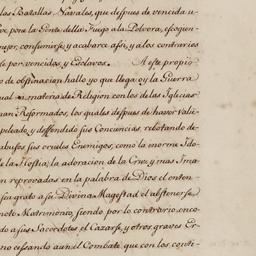 las Batallas Navales, que despues de vencida u
ve, pone la Gente della Fuego a la Polvora, escogen
mejor, consumirse y acabarse assi, y a los contrarios
se por vencidos y Esclavos. A este proprio
de obstinacion hallo yo que llega oy la Guerra
qual en materia de Religion con los de las Iglesias
man Reformados, los quales despues de haver Vali
peleado, y deffendido sus Concuncias, rebotando de
abusos sus crueles Enemigos, como la inorme Ido
de la Hostia; la adoracion de la Cruz, y mas Ima
n reprovadas en la palabra de Dios el onten
su grato a su Divina Magestad el abstenerse
moto Matrimonio, siendo por lo contrario, enco
do a sus Sacerdotes el Cazarse, y otros graves Er
no cessando aun el Combate, que con los conti